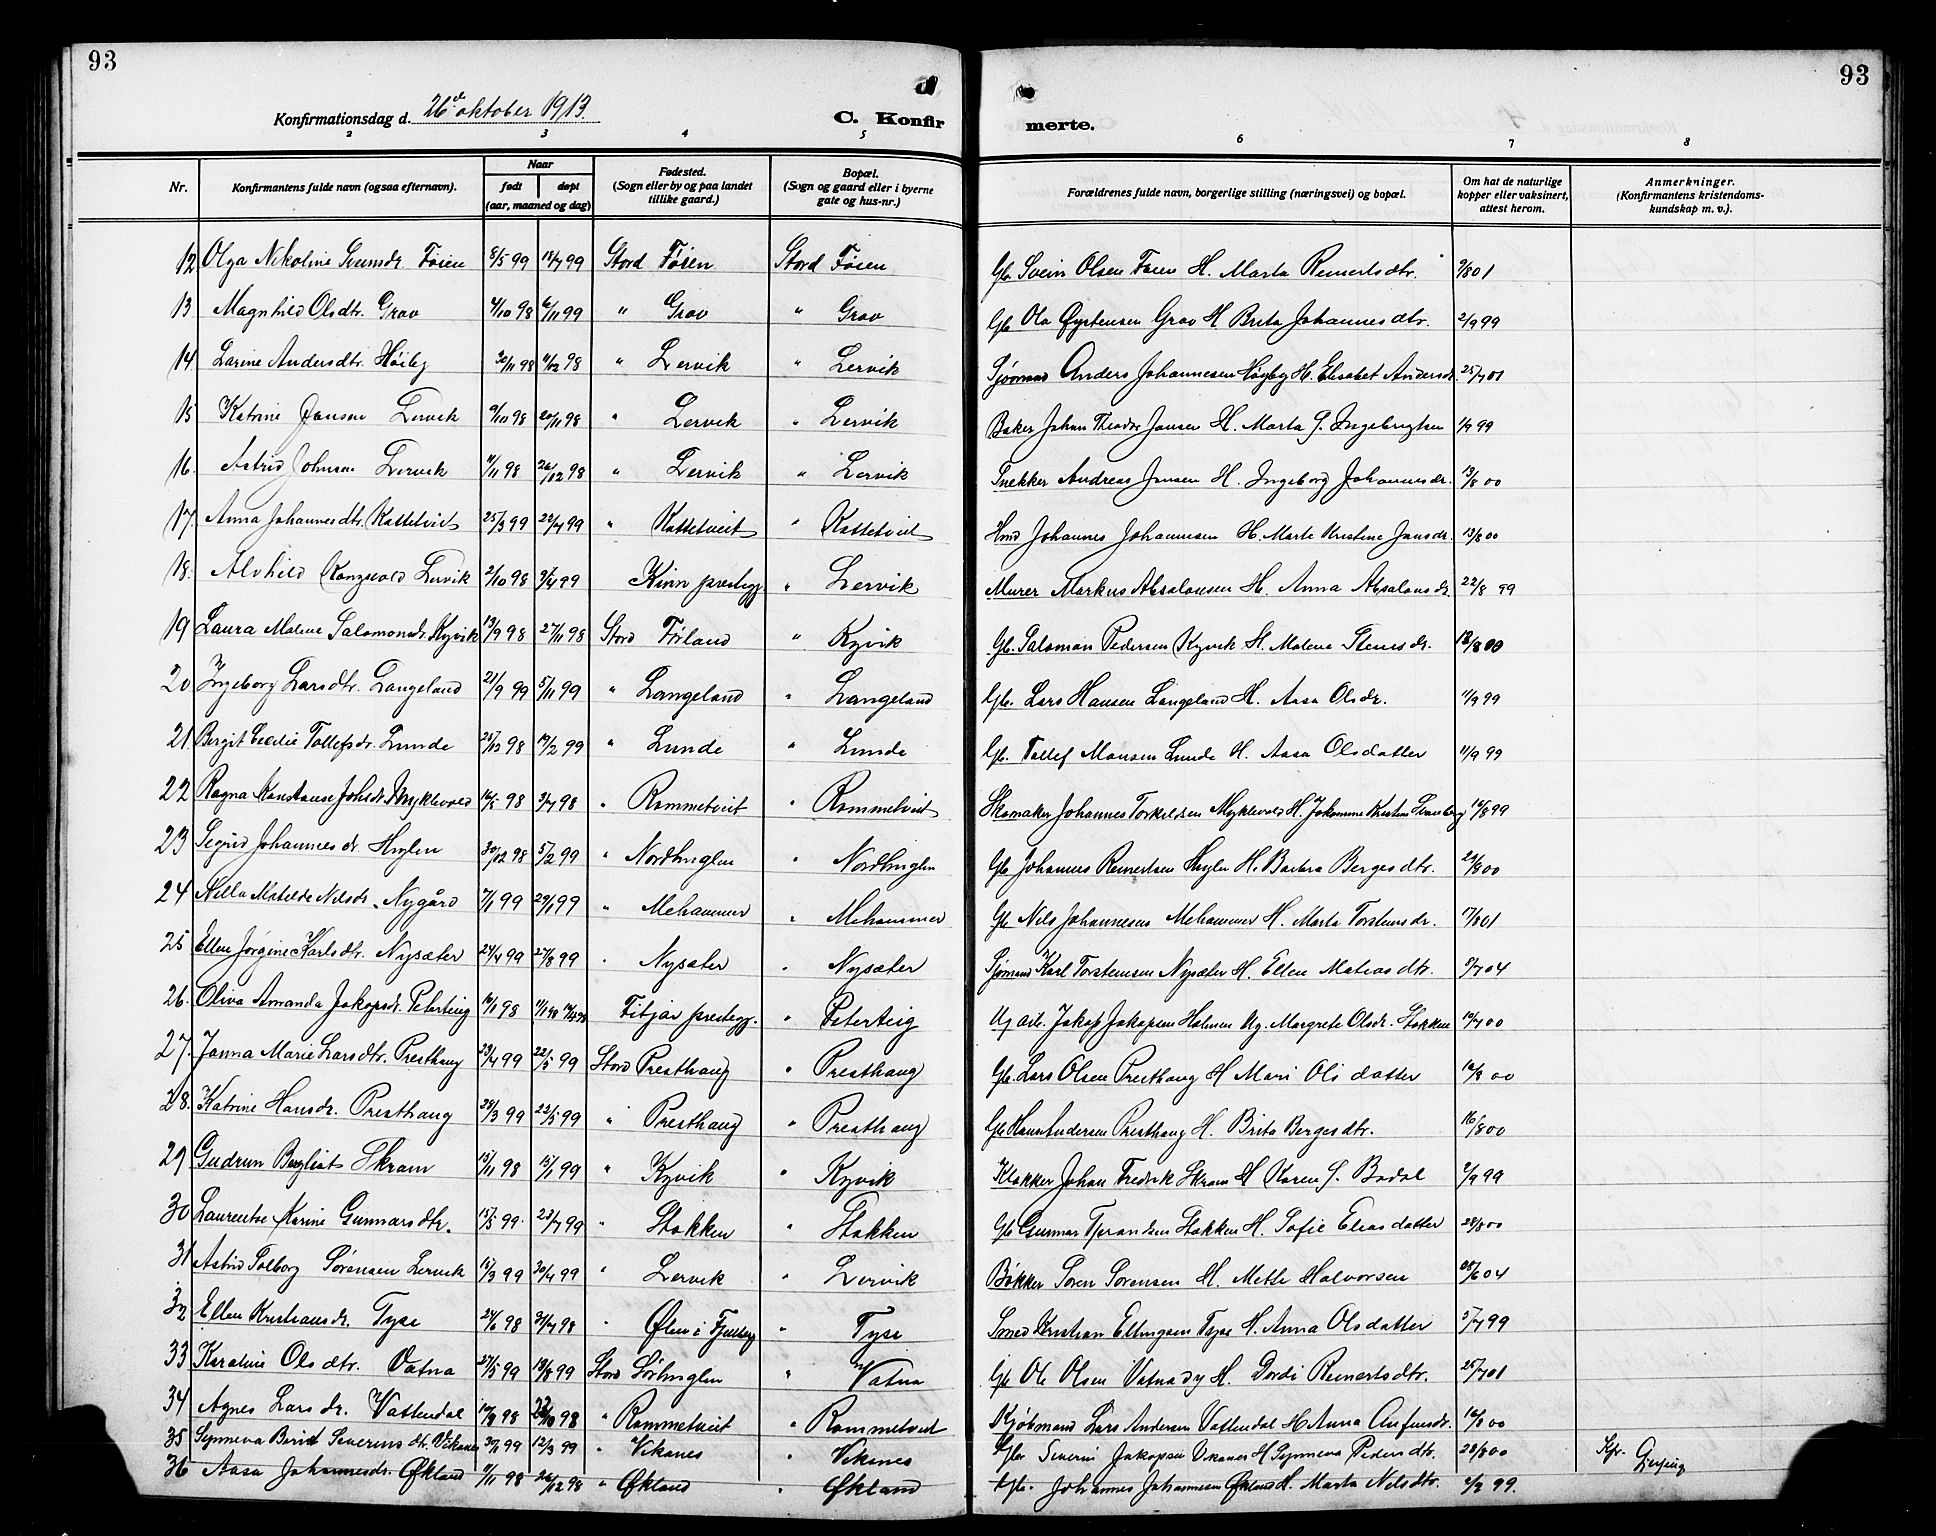 93
93
Konfirmationsdag d. 26de oktober 1913.
C. Konfirmerte.
2 3 4 5 6 7 8
Nr. Konfirmantens fulde navn (ogsaa efternavn). Naar født døpt (aar, maaned og dag) Fødested. (Sogn eller by og paa landet tillike gaard.) Bopæl. (Sogn og gaard eller i byerne gate og hus-nr.) Forældrenes fulde navn, borgerlige stilling (næringsvei) og bopæl. Om hat de naturlige kopper eller vaksinert, attest herom. Anmerkninger. (Konfirmantens kristendomskundskap m. v.).
12 Olga Nikoline Svensdr. Føien 8/5 99 18/7 99 Stord Føien Stord Føien Gb. Svein Olsen Føien H. Marta Reinertsdtr. 9/8 01
13 Magnhild Olsdtr. Grov 4/10 98 6/11 99 " Grov " Grov Gb. Ola Øystensen Grov H. Brita Johannesdtr. 2/9 99
14 Larine Andersdtr. Høiby 30/11 98 11/12 98 " Lervik " Lervik Sjømand Anders Johannesen Høyby H. Elisabet Andersdr. 25/7 01
15 Katrine Jansen Lervik 9/10 98 20/11 98 " Lervik " Lervik Baker Johan Theodor Jansen H. Marta G. Ingebrigtsen 1/9 99
16. Astrid Johnsen Lervik 11/11 98 26/12 98 " Lervik " Lervik Snekker Andreas Jonsen H. Ingeborg Johannesdr. 13/8 00
17. Anna Johannesdtr. Kattetveit 25/3 99 22/7 99 " Kattetveit " Kattetveit Hmd Johannes Johannesen H. Marte Kristine Jansdr. 13/8 00
18. Alvhild Kongsvold Lervik 2/10 98 3/4 99 Kinn prestegj. " Lervik Murer Markus Absalonsen H. Anna Absalonsdr. 22/8 99
19 Laura Malene Salomonsdr. Kyvik 13/9 98 27/11 98 Stord Førland " Kyvik Gb. Salomon Pedersen Kyvik H. Malene Stensdr. 13/8 00
20 Ingeborg Larsdtr. Langeland 21/9 99 5/11 99 " Langeland " Langeland Gb. Lars Hansen Langeland H. Aasa Olsdr. 11/9 99
21 Bergit Cecilie Tollefsdr. Lunde 25/12 98 19/2 99 " Lunde " Lunde Gb. Tollef Monsen Lunde H. Aasa Olsdatter 11/9 99
22 Ragna Konstanse Johsdr. Myklevold 16/5 98 3/7 98 " Rommetveit " Rommetveit Skomaker Johannes Torkeldsen Myklevold H. Johanne Kristine 16/8 99
23 Sigrid Johannesdr. Huglen 30/12 98 5/2 99 " Nordhuglen " Nordhuglen Gb. Johannes Reinertsen Huglen H. Barbra Bergesdtr. 21/8 00
24 Nella Matelde Nilsdr. Nygård 7/1 99 29/1 99 " Mehammer " Mehammer Gb. Nils Johannesen Mehammer H. Marta Torstensdr. 17/8 01
25 Ellen Jørgine Karlsdtr. Nysæter 24/4 99 27/8 99 " Nysæter " Nysæter Sjømand Karl Torstensen Nysæter H. Ellen Matiasdtr. 9/7 04
26. Oliva Amanda Jakopsdr. Peterteig 16/1 98 Fitjar prestegj. " Peterteig Ug arb. Jakop Jakopsen Holmen Ug. Margrete Olsdr. Stokken 10/7 00
27. Janna Marie Larsdtr. Presthaug 23/4 99 22/5 99 Stord Presthaug " Presthaug Gb. Lars Olsen Presthaug H. Mari Olsdatter 16/8 00
28. Katrine Hansdr. Presthaug 28/3 99 22/5 99 " Presthaug " Presthaug Gb Hans Andersen Presthaug H. Brita Bergesdtr. 16/8 00
29 Gudrun Bergliot Skram 15/11 98 15/1 99 " Kyvik " Kyvik Klokker Johan Fredrik Skram H Karen S. Bødal 2/9 99
30 Laurentse Karine Gunnarsdtr. 15/5 99 23/7 99 " Stokken " Stokken Gb Gunnar Tjerandsen Stokken H. Sofie Eliasdatter 28/8 00
31 Astrid Solborg Sørensen Lervik 15/3 99 30/4 99 " Lervik " Lervik Bøkker Soren Sorensen H. Mette Halvorsen 28/6 04
32 Ellen Kristiansdr. Tyse 24/6 98 31/7 98 " Ølen i Fjelberg " Tyse Smed Kristian Ellingsen Tyse H. Anna Olsdatter 5/7 99
33 Karoline Olsdtr. Vatna 27/5 99 13/8 99 Stord Sørhuglen " Vatna Gb Ole Olsen Vatnadø H. Dordi Reinertsdtr. 25/7 01
34 Agnes Larsdr. Vattendal 10/9 98 23/10 98 " Rommetveit " Rommetveit Kjøbmand Lars Andersen Vattendal H Anna Anfinsdr. 16/8 00
35 Synneva Berit Severinsdtr. Vikanes 30/1 99 12/3 99 " Vikanes " Vikanes Gbr Severin Jakopsen Vikanes H Synneva Pedersdtr. 28/8 00 Kfr.
36 Aasa Johannesdr. Økland 11/11 98 26/12 98 " Økland " Økland Gb. Johannes Johannesen Økland H. Marta Nilsdtr. 4/9 99.